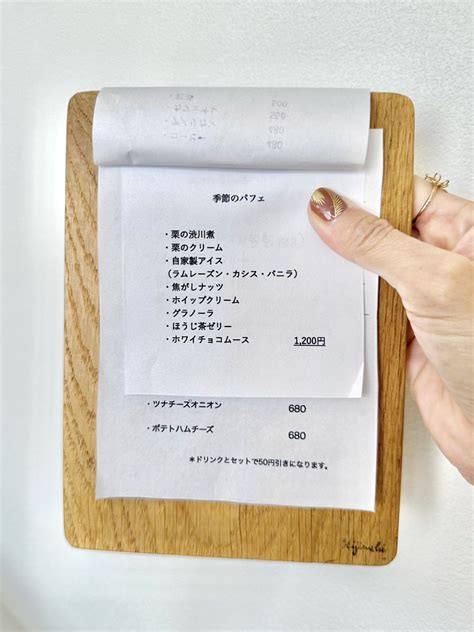 季節のパフェ
・栗の渋川煮
・栗のクリーム
・自家製アイス
（ラムレーズン・カシス・バニラ）
・焦がしナッツ
・ホイップクリーム
・グラノーラ
・ほうじ茶ゼリー
・ホワイチョコムース 1,200円
・ツナチーズオニオン 680
・ポテトハムチーズ 680
＊ドリンクとセットで50円引きになります。